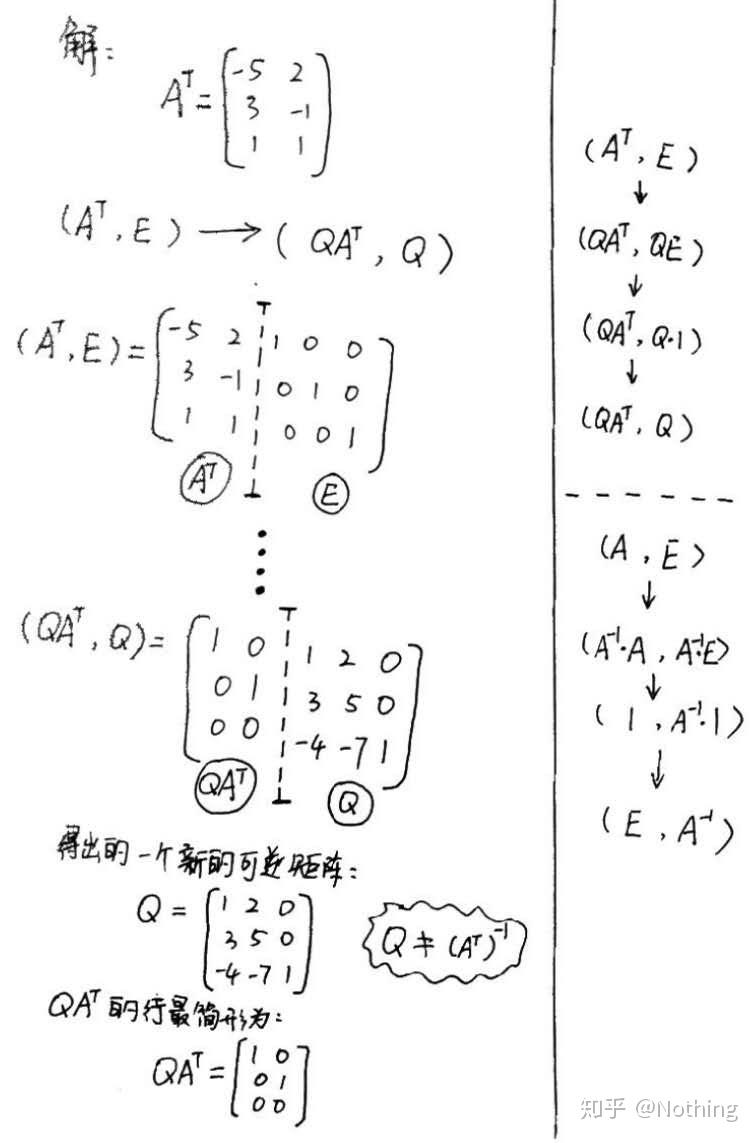 解:
Aᵀ = [-5 2
3 -1
1 1]
(Aᵀ, E) → (QAᵀ, Q)
(Aᵀ, E) = [-5 2 | 1 0 0
3 -1 | 0 1 0
1 1 | 0 0 1]
Aᵀ E
⋮
(QAᵀ, Q) = [1 0 | 1 2 0
0 1 | 3 5 0
0 0 | -4 -7 1]
QAᵀ Q
得出的一个新的可逆矩阵:
Q = [1 2 0
3 5 0
-4 -7 1]
Q ≠ (Aᵀ)⁻¹
QAᵀ的行最简形为:
QAᵀ = [1 0
0 1
0 0]
(Aᵀ, E)
↓
(QAᵀ, QE)
↓
(QAᵀ, Q·1)
↓
(QAᵀ, Q)
(A, E)
↓
(A⁻¹·A, A⁻¹·E)
↓
(1, A⁻¹·1)
↓
(E, A⁻¹)
知乎 @Nothing